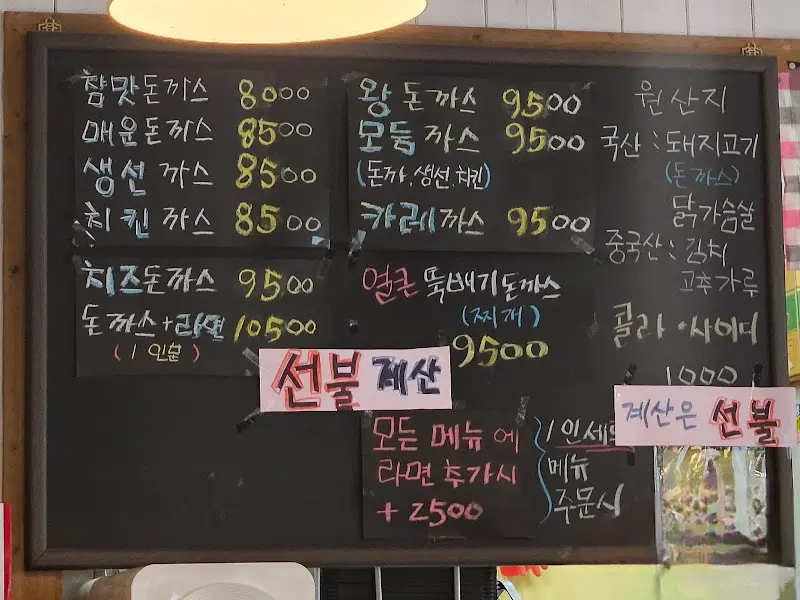 참맛돈까스 8000
매운돈까스 8500
생선까스 8500
치킨까스 8500
치즈돈까스 9500
돈까스+라면 10500
(1인분)
왕돈까스 9500
모둠까스 9500
(돈까,생선,치킨)
카레까스 9500
얼큰 뚝배기돈까스
(찌개)
9500
선불 계산
모든 메뉴에
라면추가시
+2500
1인세트
메뉴
주문시
원산지
국산:돼지고기
(돈까스)
닭가슴살
중국산:김치
고추가루
콜라·사이다
1000
계산은 선불